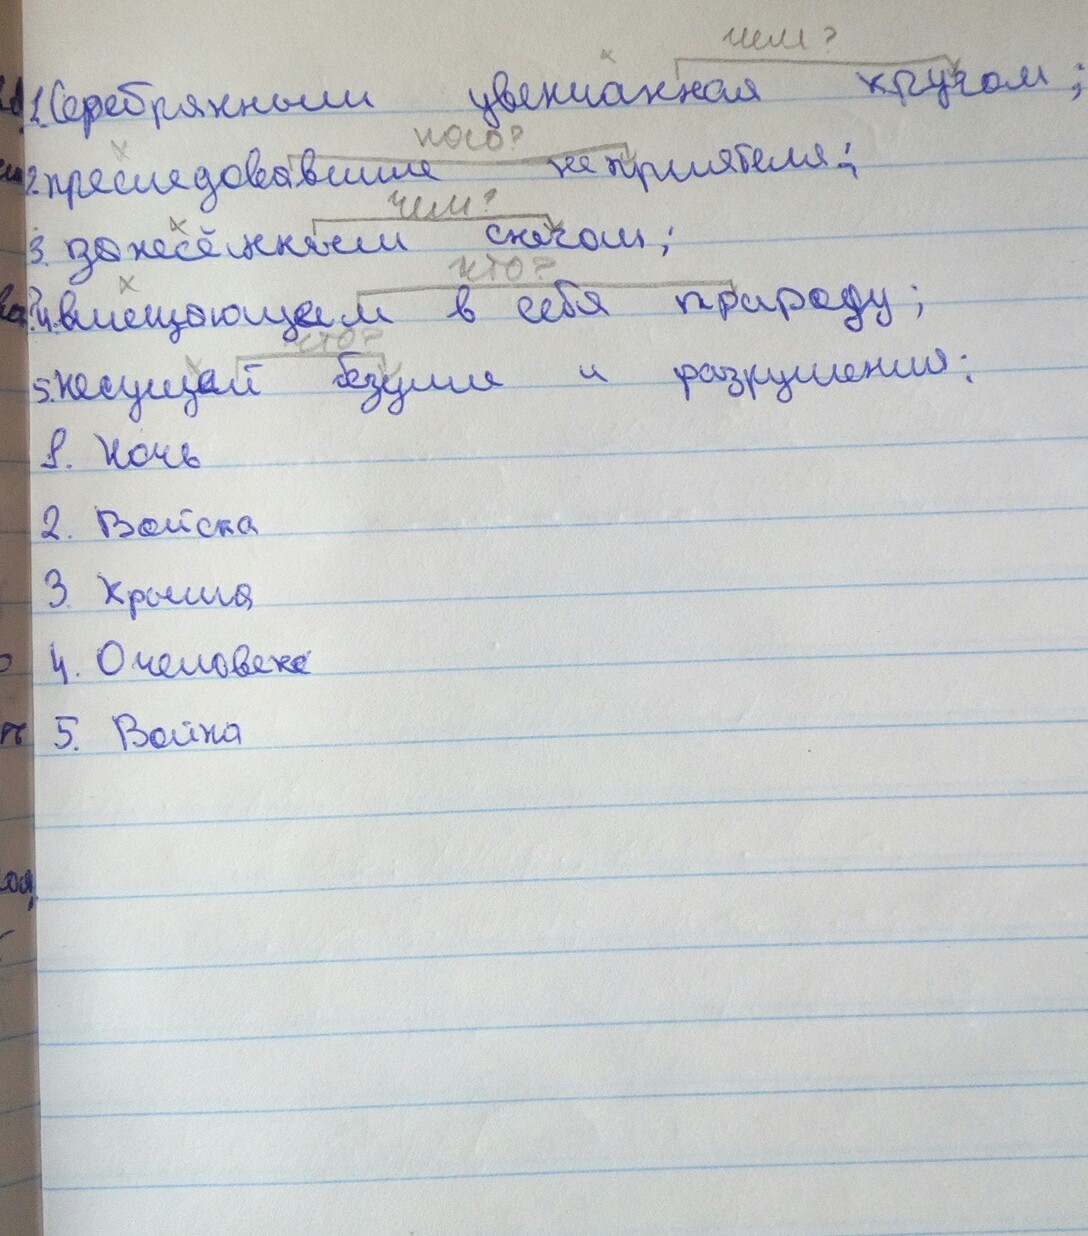 чем?
х
1. Серебряным увенчанная кругом;
кого?
х
2. преследовавшие неприятеля;
чем?
х
3. занесённым снегом;
что?
х
4. вмещающем в себя природу;
что?
х
5. несущей безумие и разрушения.
1. Ночь
2. Войска
3. Крыша
4. О человеке
5. Война